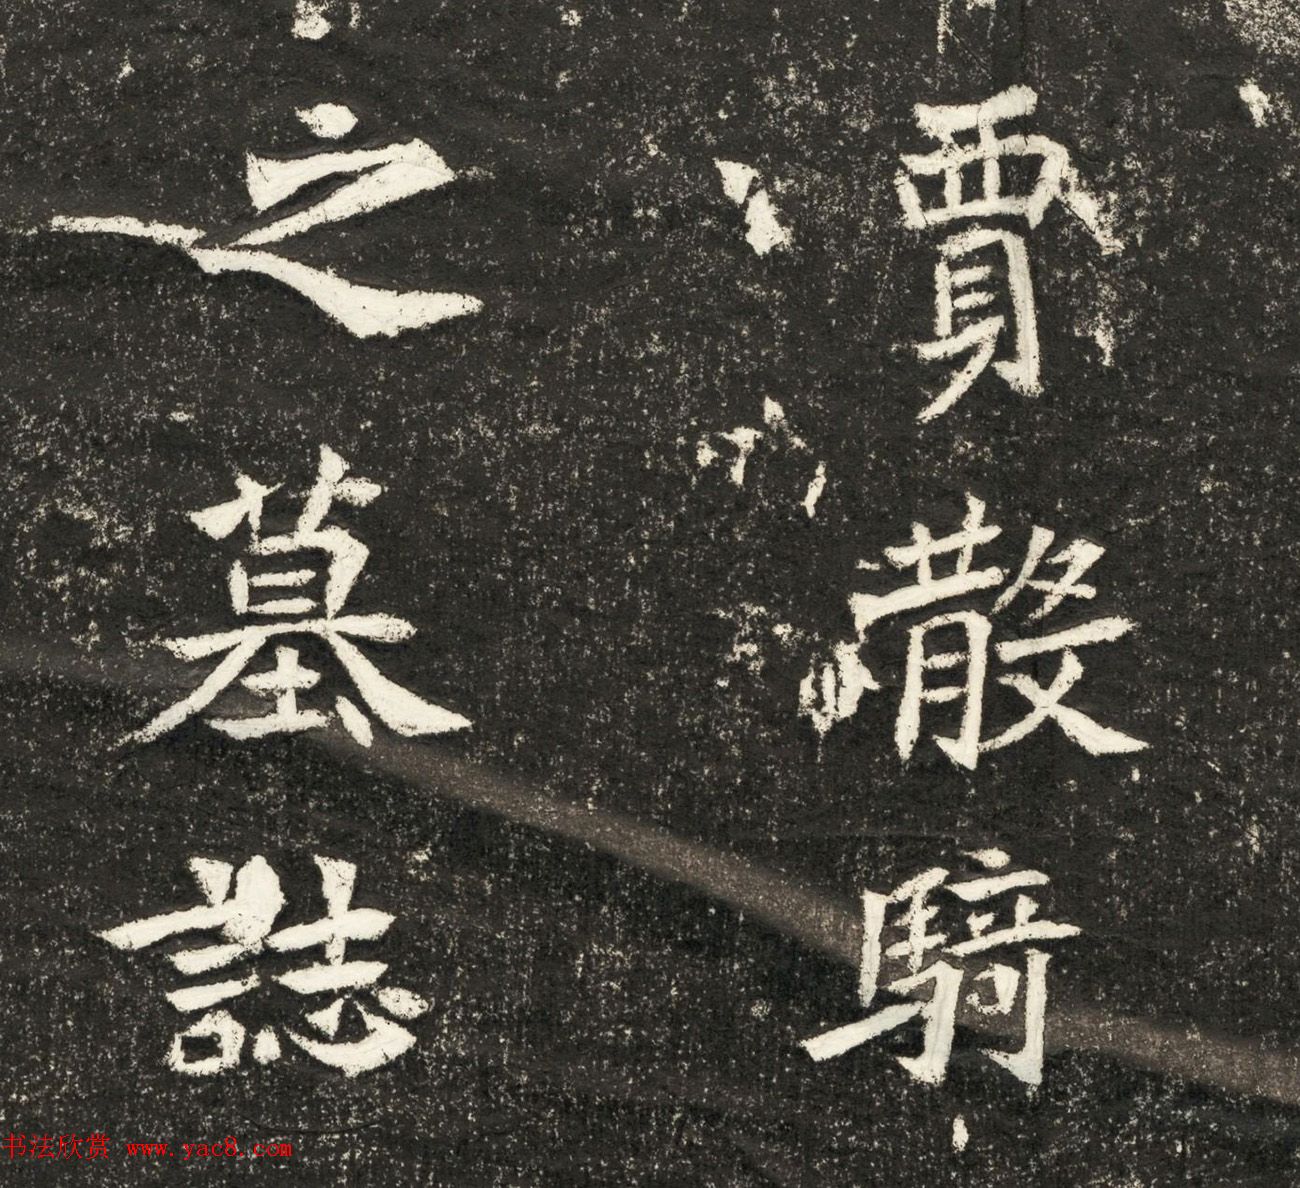 賈散騎
之墓誌
书法欣赏 www.yac8.com